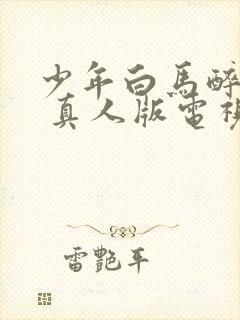 少年白馬醉
真人版電視
雷艷平